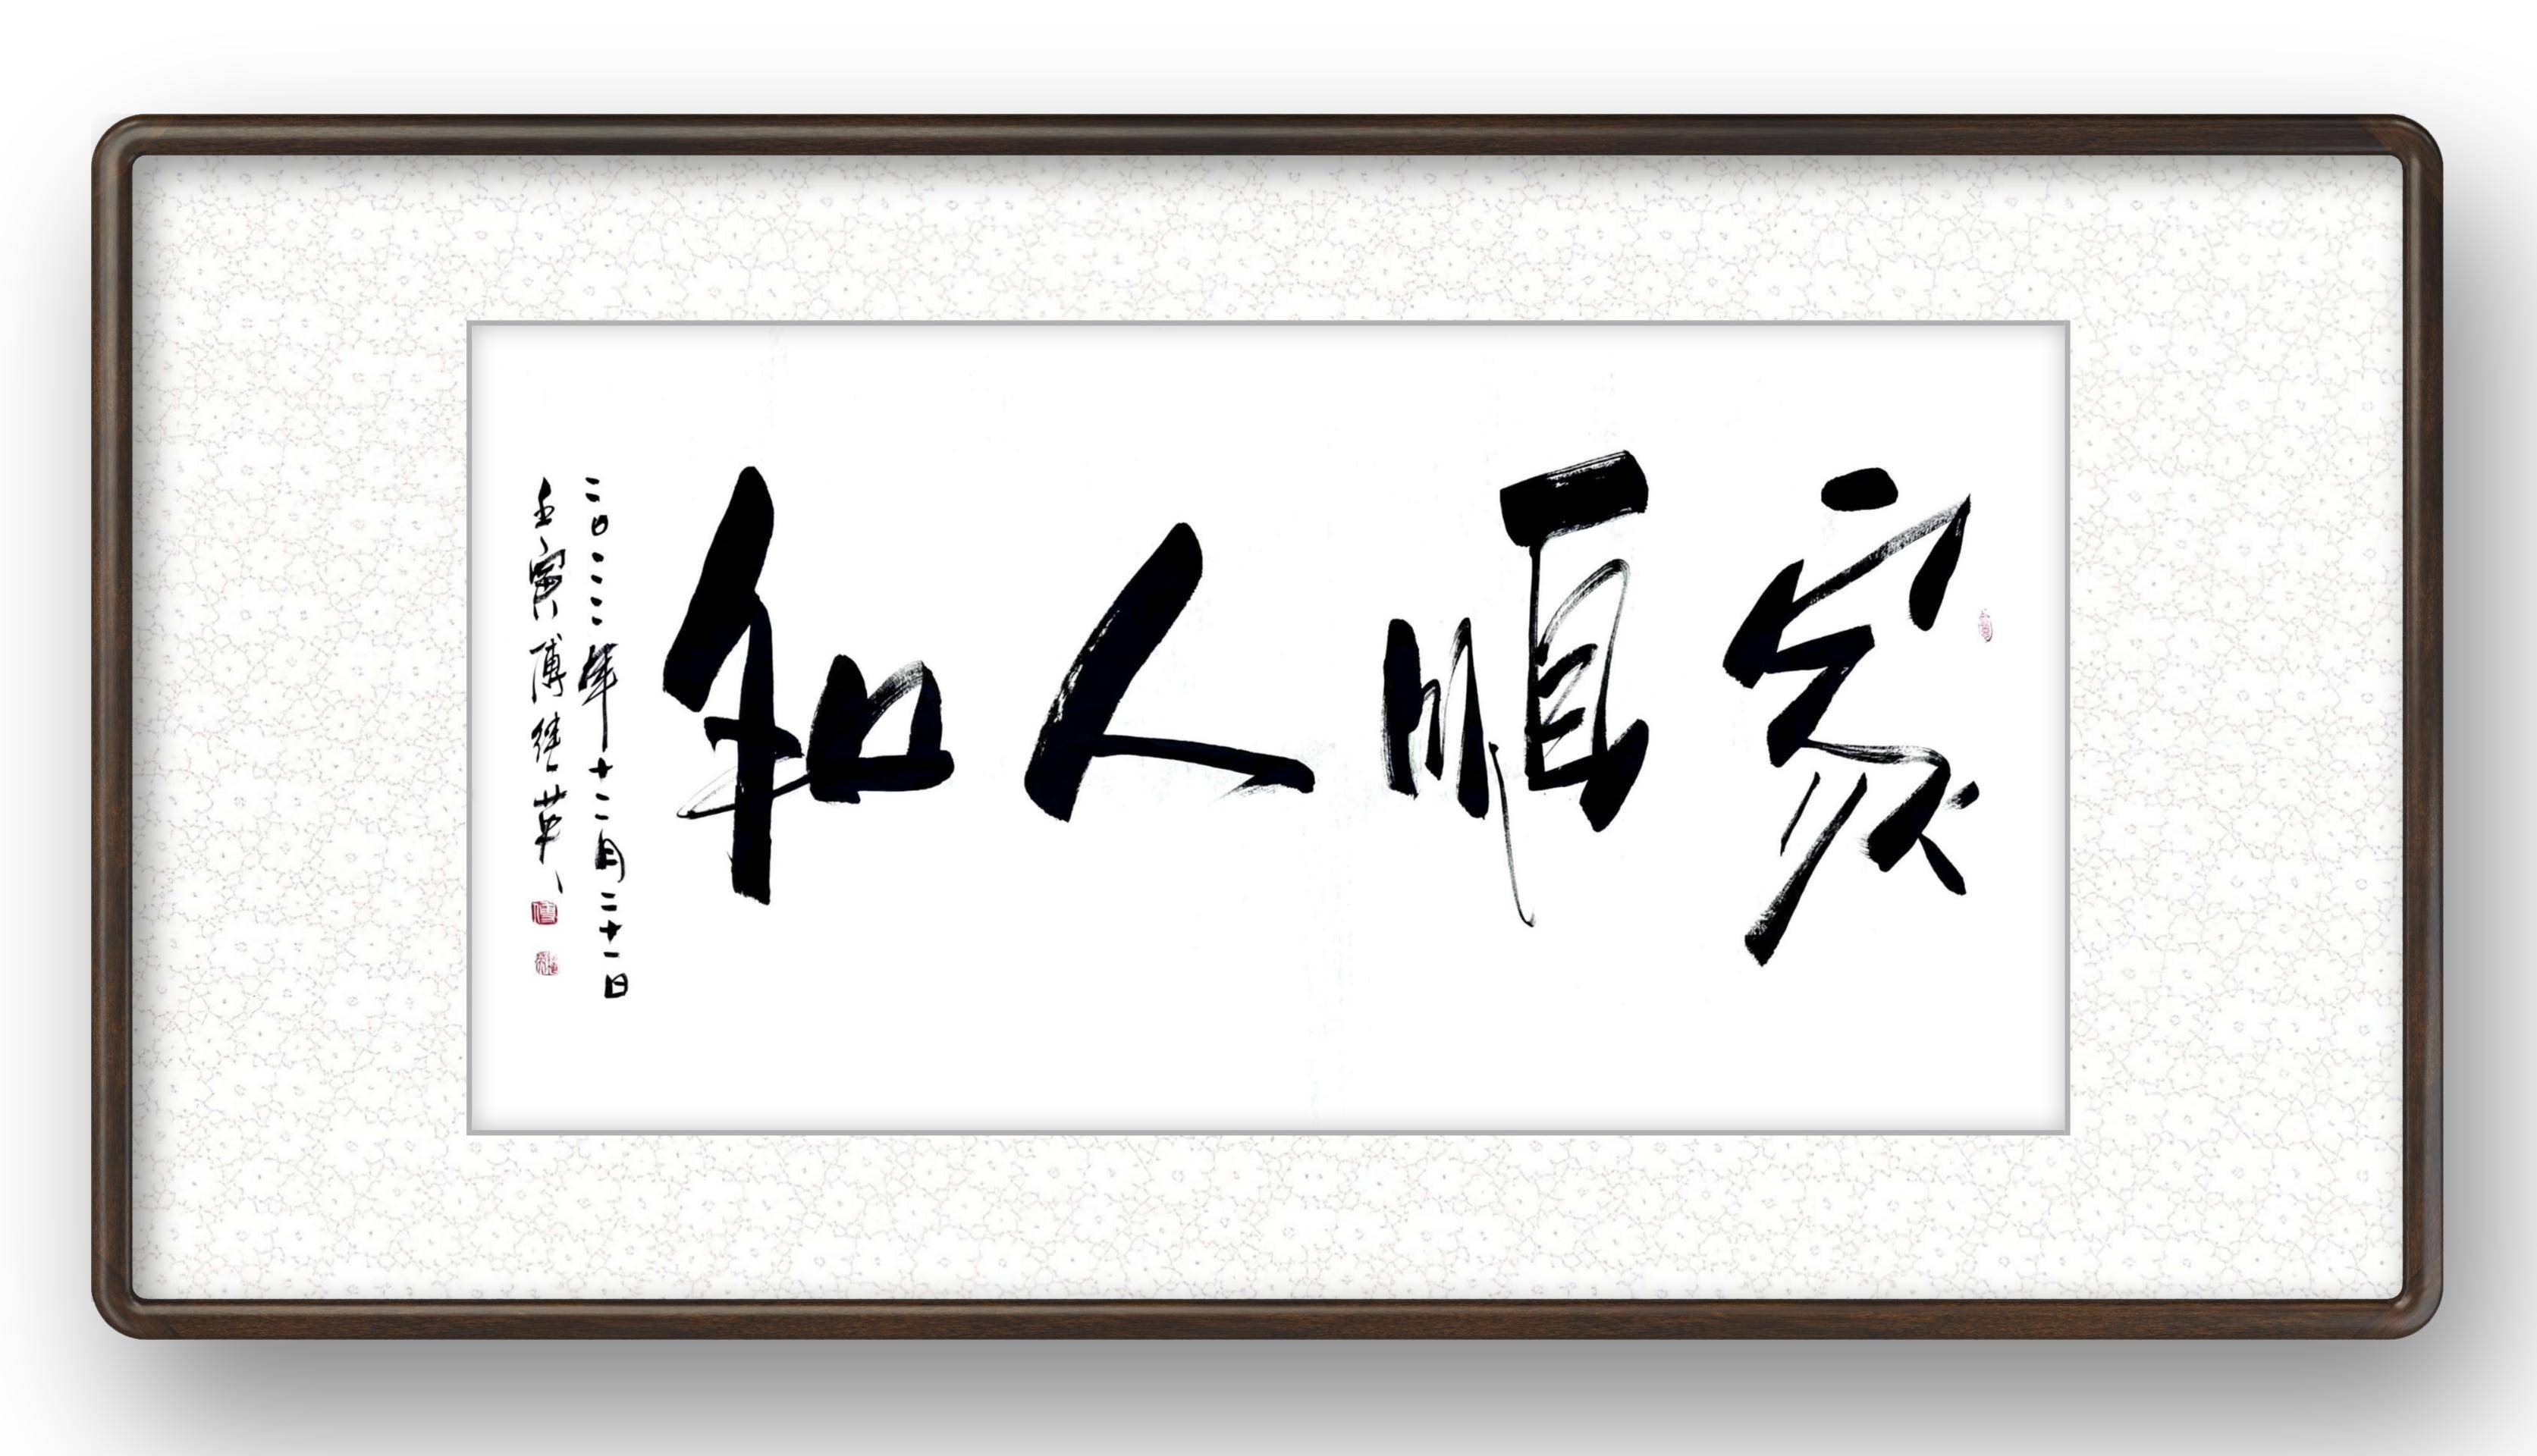 家順人和
二〇二二年十二月二十一日
壬寅傅继英